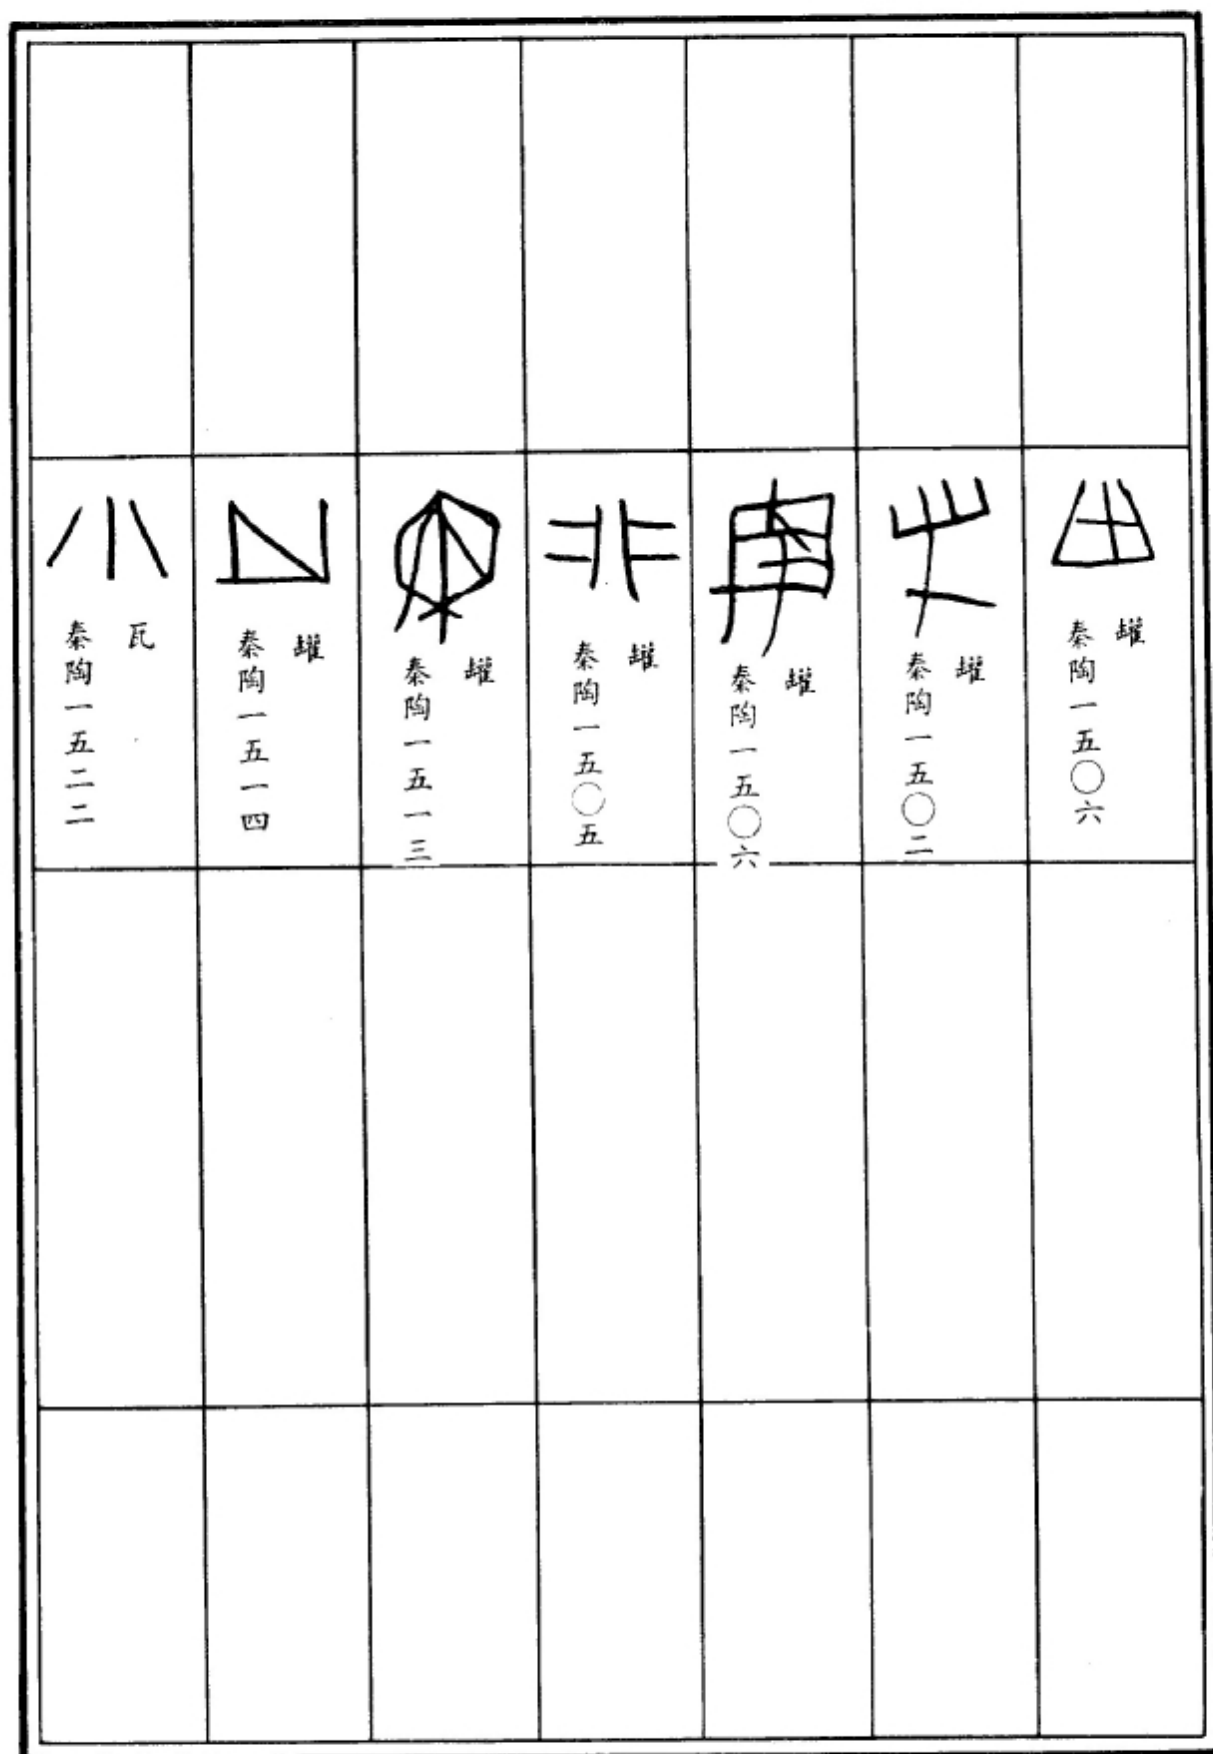 罐
秦陶一五〇六
罐
秦陶一五〇二
罐
秦陶一五〇六
罐
秦陶一五〇五
罐
秦陶一五一三
罐
秦陶一五一四
瓦
秦陶一五二二